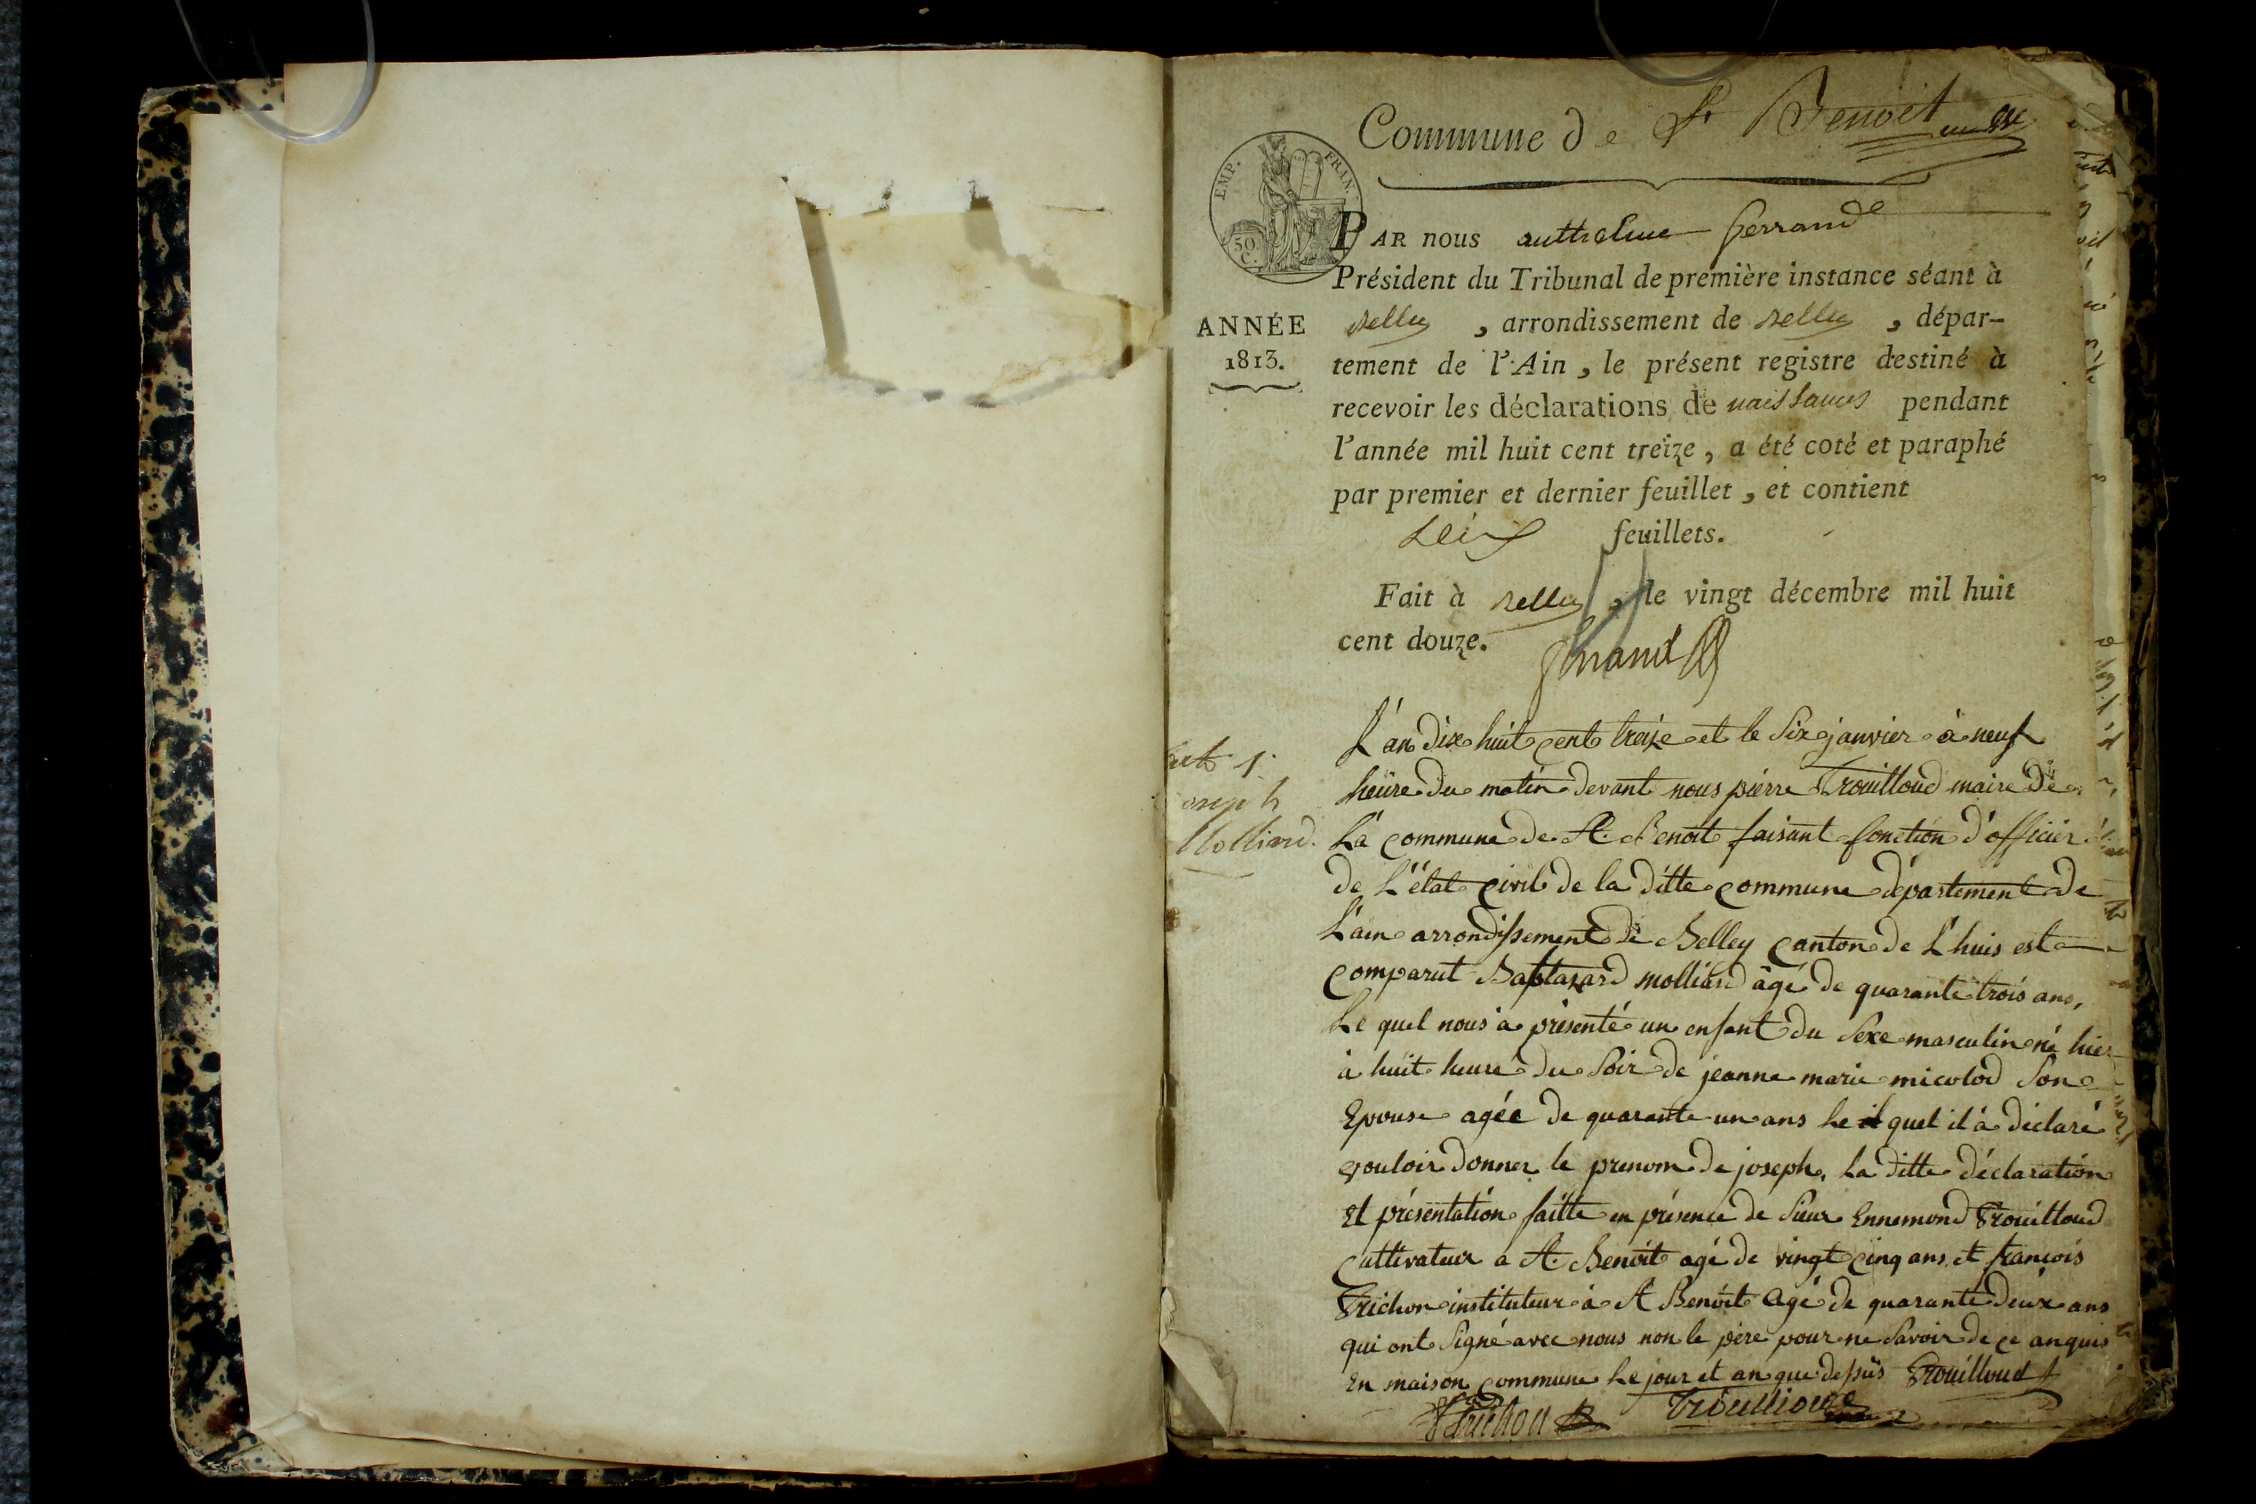 Commune de St Benoit
EMP. FRAN.
50 C.
PAR nous anthelme ferrand
Président du Tribunal de première instance séant à
ANNÉE
1813.
Belley, arrondissement de Belley, dépar-
tement de l'Ain, le présent registre destiné à
recevoir les déclarations de naissances pendant
l'année mil huit cent treize, a été coté et paraphé
par premier et dernier feuillet, et contient
feuillets.
Fait à Belley, le vingt décembre mil huit
cent douze.
ferrand
acte 1.
joseph
Molliard.
L'an dix huit cent treize et le Six janvier à neuf
heure du matin devant nous pierre Trouilloud maire De
La commune de St. Benoit faisant fonction d'officier
de L'état civil de la ditte commune département de
L'ain arrondissement de Belley canton de L'huis est
comparut Baltazard molliard âgé de quarante trois ans,
Le quel nous a présenté un enfant du Sexe masculin né hier
à huit heure du Soir de jeanne marie micolod Son
Epouse agée de quarante un ans Le quel il à déclaré
vouloir donner le prenom de joseph, La ditte déclaration
Et présentation faitte en présence de Sieur Ennemond Trouilloud
Cultivateur a St. Benoit agé de vingt cinq ans et françois
Trichon instituteur à St Benoit Agé de quarante deux ans
qui ont Signé avec nous non le père pour ne Savoir de ce anquis
En maison commune Le jour et an que dessus Trouilloud
Trichon Trouilloud